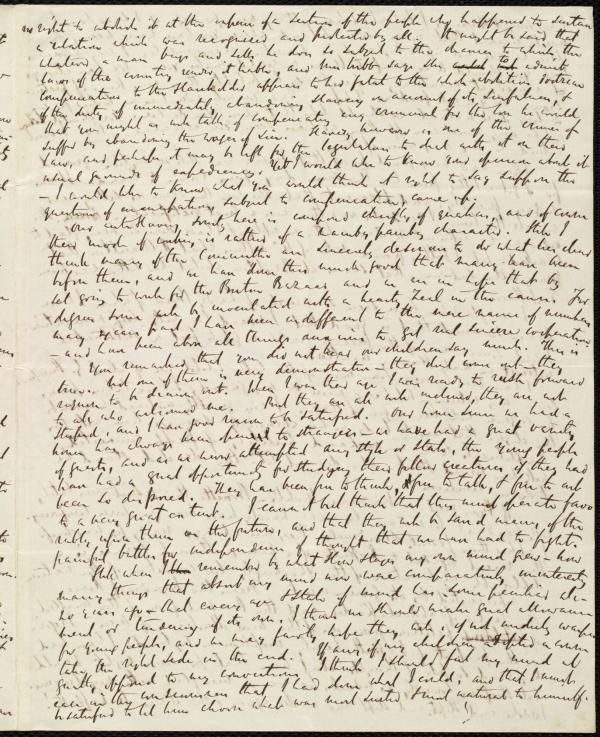 no right to abolish it at the expense of a section of the people who happened to sustain
a relation which was recognised and protected by all. It might be said that
whatever a man buys and sells he does so subject to the chances to which the
laws of the country render it liable, and Mrs Webb says she admits
compensation to the Slaveholder appears to her fatal to the whole abolition doctrine
of the duty of immediately abandoning slavery on account of its sinfulness, &
that you might as well talk of compensating any criminal for the loss he would
suffer by abandoning the wages of sin. Slavery however is one of the crimes of
law, and perhaps it may be left for the legislature to deal with it on their
usual grounds of expediency. Yet I would like to know your opinion about it
— I would like to know what you would think it right to say suppose this
question of emancipation, subject to compensation, came up.
Our anti-slavery Society here is composed chiefly of Quakers, and of course
their mode of working is rather of a namby pamby character. Still I
think many of the Committee are sincerely desirous to do what lies clear
before them, and we have done this much good that many have been
set going to work for the Boston Bazaar and we are in hopes that by
degrees some will be inoculated with a hearty zeal in the cause. For
many years past I have been indifferent to the mere name of numbers
— and have been above all things anxious to get real sincere cooperation.
You remarked that you did not hear our children say much. This is
true. Not one of them is very demonstrative — they don't come out — they
require to be drawn out. When I was their age I was ready to rush forward
to all who welcomed me. But they are all well inclined, they are not
stupid, and I have good reason to be satisfied. Our home since we had a
house has always been opened to strangers — we have had a great variety
of guests, and as we never attempted any style or state, the young people
have had a great opportunity for studying their fellow creatures, if they had
been so disposed. They have been free to think, free to talk, & free to act
to a very great extent. I cannot but think that this must operate favo
rably upon them in the future, and that they will be saved many of the
painful battles for independence of thought that we have had to fight.
Still when I remember by what slow stages my own mind grew — how
many things that absorb my mind now were comparatively uninteresting
so years ago — that every age & state of mind has some peculiar ele-
ment or tendency of its own, I think we should make great allowance
for young people, and we may fairly hope they will, if not unduly warped
take the right side in the end. If any of my children adopted a course
greatly opposed to my convictions I think I should feel my mind at
ease in the consciousness that I had done what I could, and that I must
be satisfied to let him choose what was most suited & most natural to himself.